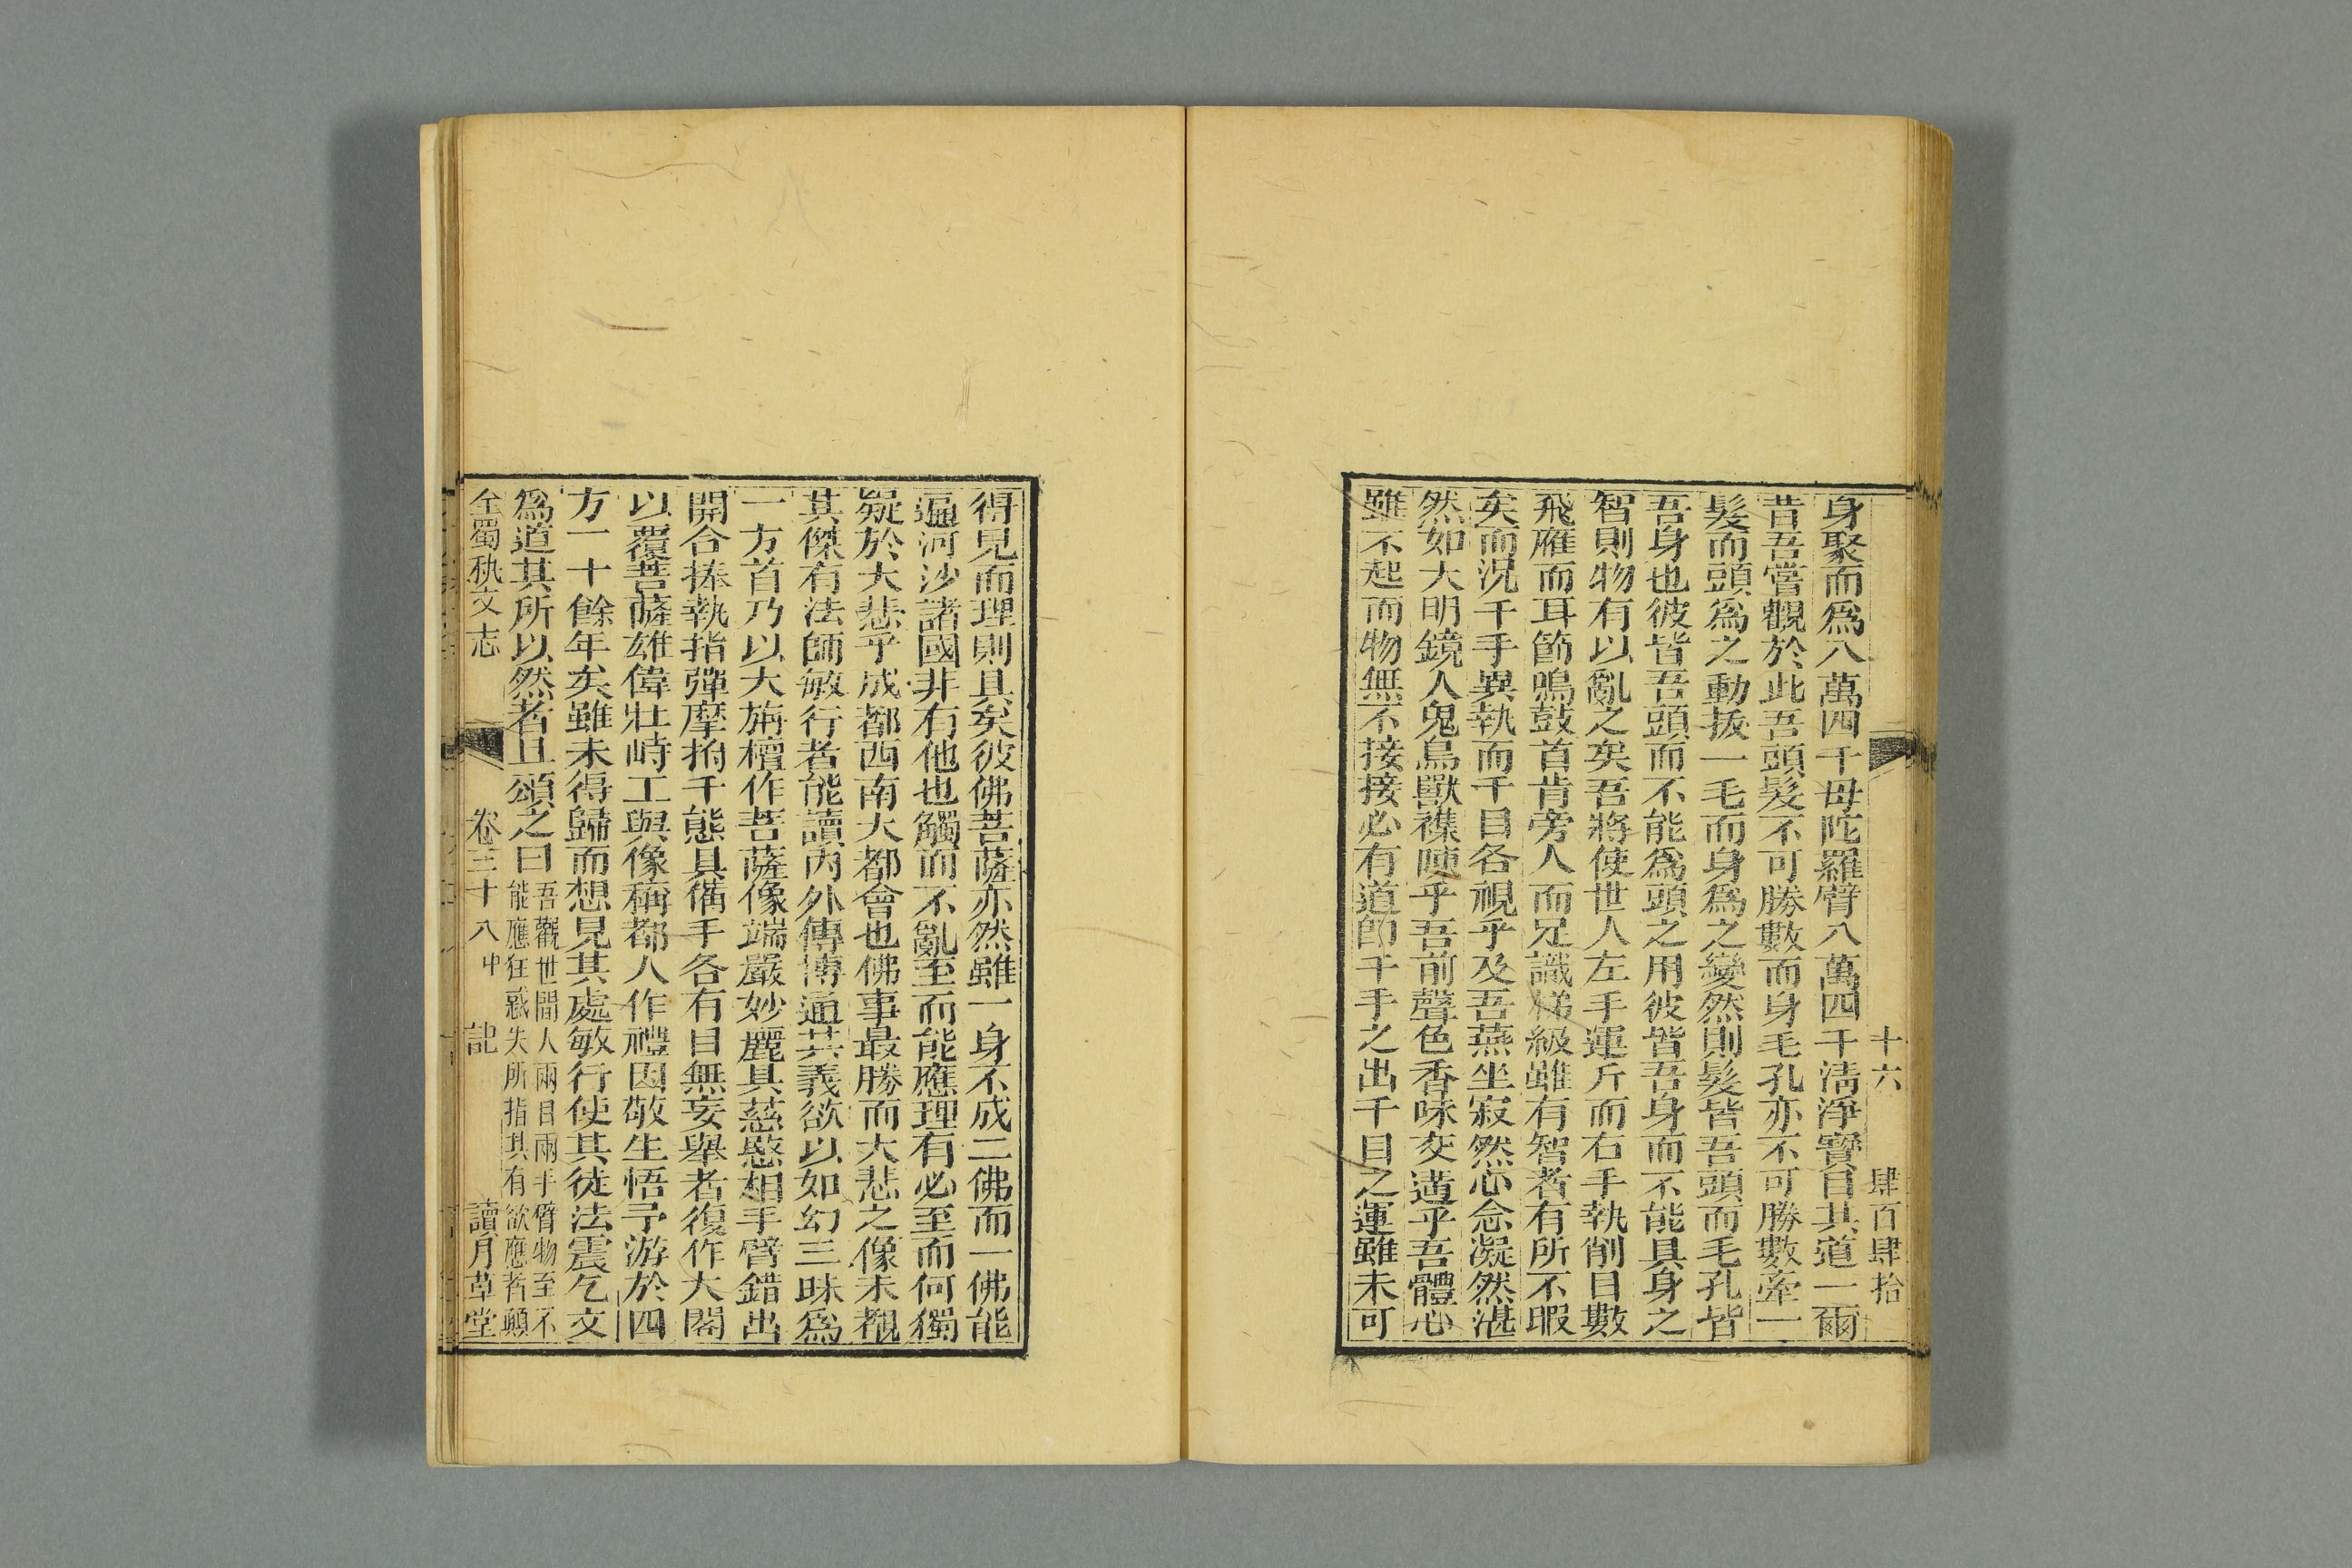 十六 肆百肆拾
身聚而爲八萬四千母陀羅臂八萬四千淸淨寶目其道一爾
昔吾嘗觀於此吾頭髮不可勝數而身毛孔亦不可勝數牽一
髮而頭爲之動拔一毛而身爲之變然則髮皆吾頭而毛孔皆
吾身也彼皆吾頭而不能爲頭之用彼皆吾身而不能具身之
智則物有以亂之矣吾將使世人左手運斤而右手執削目數
飛雁而耳節鳴鼓首肯旁人而足識梯級雖有智者有所不暇
矣而況千手異執而千目各視乎及吾燕坐寂然心念凝然湛
然如大明鏡人鬼鳥獸襍陳乎吾前聲色香味交遘乎吾體心
雖不起而物無不接接必有道卽千手之出千目之運雖未可
得見而理則具矣彼佛菩薩亦然雖一身不成二佛而一佛能
遍河沙諸國非有他也觸而不亂至而能應理有必至而何獨
疑於大悲乎成都西南大都會也佛事最勝而大悲之像未覩
其傑有法師敏行者能讀內外傳博通其義欲以如幻三昧爲
一方首乃以大旃檀作菩薩像端嚴妙麗具慈愍相手臂錯出
開合捧執指彈摩拊千態具備手各有目無妄舉者復作大閣
以覆菩薩雄偉壯峙工與像稱都人作禮因敬生悟予游於四
方二十餘年矣雖未得歸而想見其處敏行使其徒法震乞文
爲道其所以然者且頌之曰
吾觀世間人兩目兩手臂物至不
能應狂惑失所指其有欲應者顚
全蜀秇文志 卷三十八中 記 讀月草堂